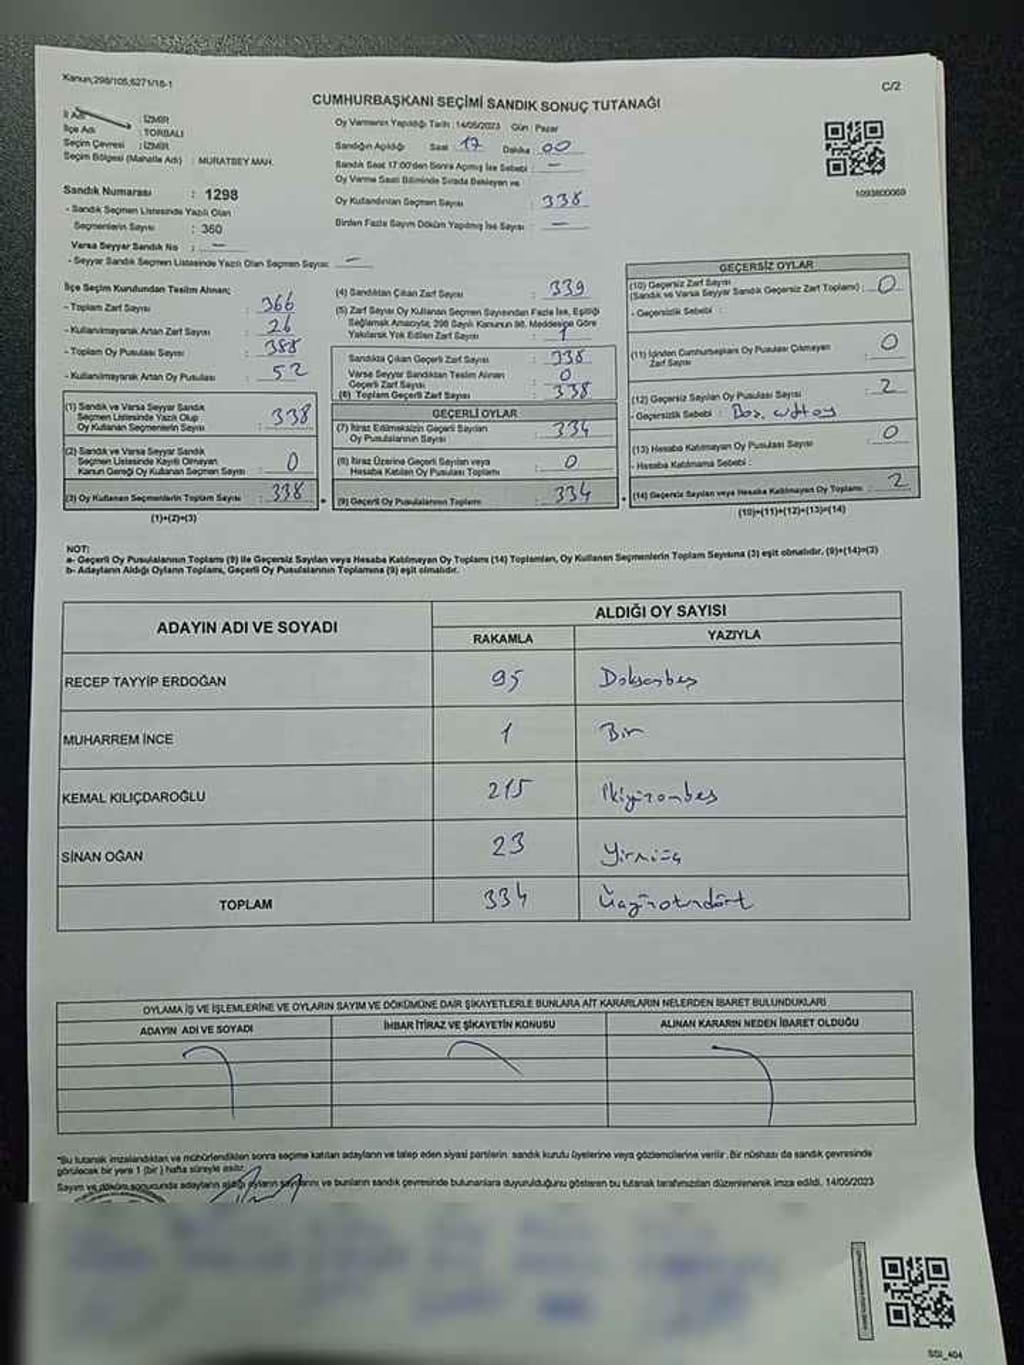 Kanun;298/105,6271/18-1
C/2
CUMHURBAŞKANI SEÇİMİ SANDIK SONUÇ TUTANAĞI
İl Adı : İZMİR
İlçe Adı : TORBALI
Seçim Çevresi : İZMİR
Seçim Bölgesi (Mahalle Adı) : MURATBEY MAH.
Sandık Numarası : 1298
- Sandık Seçmen Listesinde Yazılı Olan
Seçmenlerin Sayısı : 360
Varsa Seyyar Sandık No : —
- Seyyar Sandık Seçmen Listesinde Yazılı Olan Seçmen Sayısı: —
Oy Vermenin Yapıldığı Tarih : 14/05/2023 Gün : Pazar
Sandığın Açıldığı Saat 17 Dakika : 00
Sandık Saat 17:00'den Sonra Açılmış İse Sebebi : —
Oy Verme Saati Bitiminde Sırada Bekleyen ve
Oy Kullandırılan Seçmen Sayısı : 338
Birden Fazla Sayım Döküm Yapılmış İse Sayısı : —
1093800069
İlçe Seçim Kurulundan Teslim Alınan;
- Toplam Zarf Sayısı : 366
- Kullanılmayarak Artan Zarf Sayısı : 26
- Toplam Oy Pusulası Sayısı : 388
- Kullanılmayarak Artan Oy Pusulası : 52
(1) Sandık ve Varsa Seyyar Sandık
Seçmen Listesinde Yazılı Olup
Oy Kullanan Seçmenlerin Sayısı : 338
(2) Sandık ve Varsa Seyyar Sandık
Seçmen Listesinde Kayıtlı Olmayan
Kanun Gereği Oy Kullanan Seçmen Sayısı : 0
(3) Oy Kullanan Seçmenlerin Toplam Sayısı : 338
(1)+(2)=(3)
(4) Sandıktan Çıkan Zarf Sayısı : 339
(5) Zarf Sayısı Oy Kullanan Seçmen Sayısından Fazla İse, Eşitliği
Sağlamak Amacıyla, 298 Sayılı Kanunun 98. Maddesine Göre
Yakılarak Yok Edilen Zarf Sayısı : 1
Sandıkta Çıkan Geçerli Zarf Sayısı : 338
Varsa Seyyar Sandıktan Teslim Alınan
Geçerli Zarf Sayısı : 0
(6) Toplam Geçerli Zarf Sayısı : 338
GEÇERLİ OYLAR
(7) İtiraz Edilmeksizin Geçerli Sayılan
Oy Pusulalarının Sayısı : 334
(8) İtiraz Üzerine Geçerli Sayılan veya
Hesaba Katılan Oy Pusulası Toplamı : 0
(9) Geçerli Oy Pusulalarının Toplamı : 334
GEÇERSİZ OYLAR
(10) Geçersiz Zarf Sayısı
(Sandık ve Varsa Seyyar Sandık Geçersiz Zarf Toplamı) : 0
- Geçersizlik Sebebi :
(11) İçinden Cumhurbaşkanı Oy Pusulası Çıkmayan
Zarf Sayısı : 0
(12) Geçersiz Sayılan Oy Pusulası Sayısı : 2
- Geçersizlik Sebebi :
(13) Hesaba Katılmayan Oy Pusulası Sayısı : 0
- Hesaba Katılmama Sebebi :
(14) Geçersiz Sayılan veya Hesaba Katılmayan Oy Toplamı : 2
(10)+(11)+(12)+(13)=(14)
NOT:
a- Geçerli Oy Pusulalarının Toplamı (9) ile Geçersiz Sayılan veya Hesaba Katılmayan Oy Toplamı (14) Toplamları, Oy Kullanan Seçmenlerin Toplam Sayısına (3) eşit olmalıdır. (9)+(14)=(3)
b- Adayların Aldığı Oyların Toplamı, Geçerli Oy Pusulalarının Toplamına (9) eşit olmalıdır.
ADAYIN ADI VE SOYADI
ALDIĞI OY SAYISI
RAKAMLA YAZIYLA
RECEP TAYYİP ERDOĞAN 95 Doksanbeş
MUHARREM İNCE 1 Bir
KEMAL KILIÇDAROĞLU 215 İkiyüzonbeş
SİNAN OĞAN 23 Yirmiüç
TOPLAM 334 Üçyüzotuzdört
OYLAMA İŞ VE İŞLEMLERİNE VE OYLARIN SAYIM VE DÖKÜMÜNE DAİR ŞİKAYETLERLE BUNLARA AİT KARARLARIN NELERDEN İBARET BULUNDUKLARI
ADAYIN ADI VE SOYADI İHBAR İTİRAZ VE ŞİKAYETİN KONUSU ALINAN KARARIN NEDEN İBARET OLDUĞU
"Bu tutanak imzalandıktan ve mühürlendikten sonra seçime katılan adayların ve talep eden siyasi partilerin; sandık kurulu üyelerine veya gözlemcilerine verilir. Bir nüshası da sandık çevresinde
görülecek bir yere 1 (bir) hafta süreyle asılır.
Sayım ve döküm sonucunda adayların aldığı oyların sayılarını ve bunların sandık çevresinde bulunanlara duyurulduğunu gösteren bu tutanak tarafımızdan düzenlenerek imza edildi. 14/05/2023
SSI_404